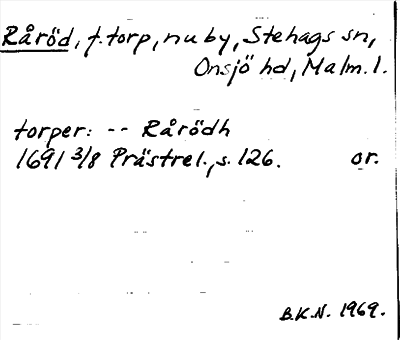 Råröd, f. torp, nu by, Stehags sn,
Onsjö hd, Malm. l.
torper: -- Rårödh
1691 3/8 Prästrel., s. 126. or.
B.K.N. 1969.